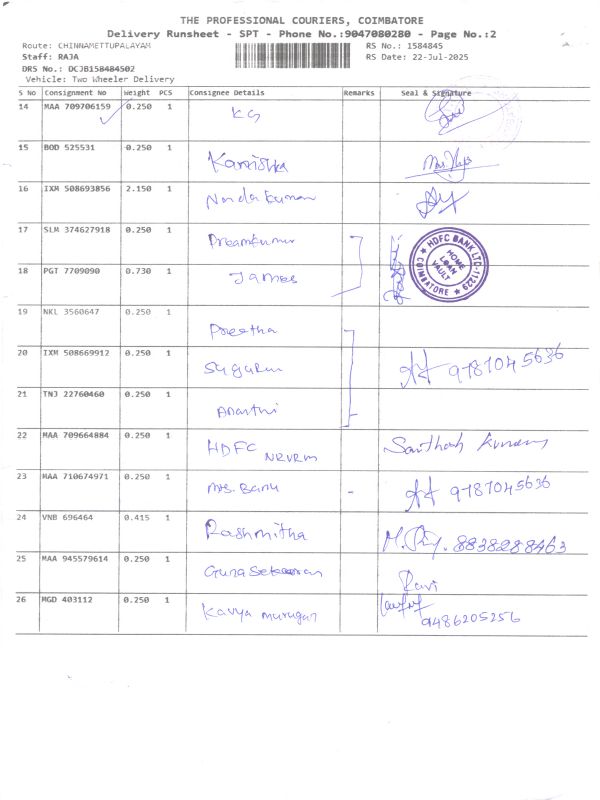 THE PROFESSIONAL COURIERS, COIMBATORE
Delivery Runsheet - SPT - Phone No.:9047080280 - Page No.:2
Route: CHINNAMETTUPALAYAM RS No.: 1584845
Staff: RAJA RS Date: 22-Jul-2025
DRS No.: DCJB158484502
Vehicle: Two Wheeler Delivery
S No Consignment No Weight PCS Consignee Details Remarks Seal & Signature
14 MAA 709706159 0.250 1 KG
15 BOD 525531 0.250 1 Kanishka
16 IXM 508693856 2.150 1 Nandakumar
17 SLM 374627918 0.250 1 Preamkumar
HDFC BANK LTD-11229 HOME LOAN VAULT COIMBATORE
18 PGT 7709090 0.730 1 James
19 NKL 3560647 0.250 1 Preetha
20 IXM 508669912 0.250 1 Sugurun 9787045636
21 TNJ 22760460 0.250 1 Ananthi
22 MAA 709664884 0.250 1 HDFC NRVRM Santhosh Kumar
23 MAA 710674971 0.250 1 Mrs. Banu - 9787045636
24 VNB 696464 0.415 1 Rashmitha 8838288463
25 MAA 945579614 0.250 1 Gunasekaran Ravi
26 MGD 403112 0.250 1 Kavya murugan 9486205256